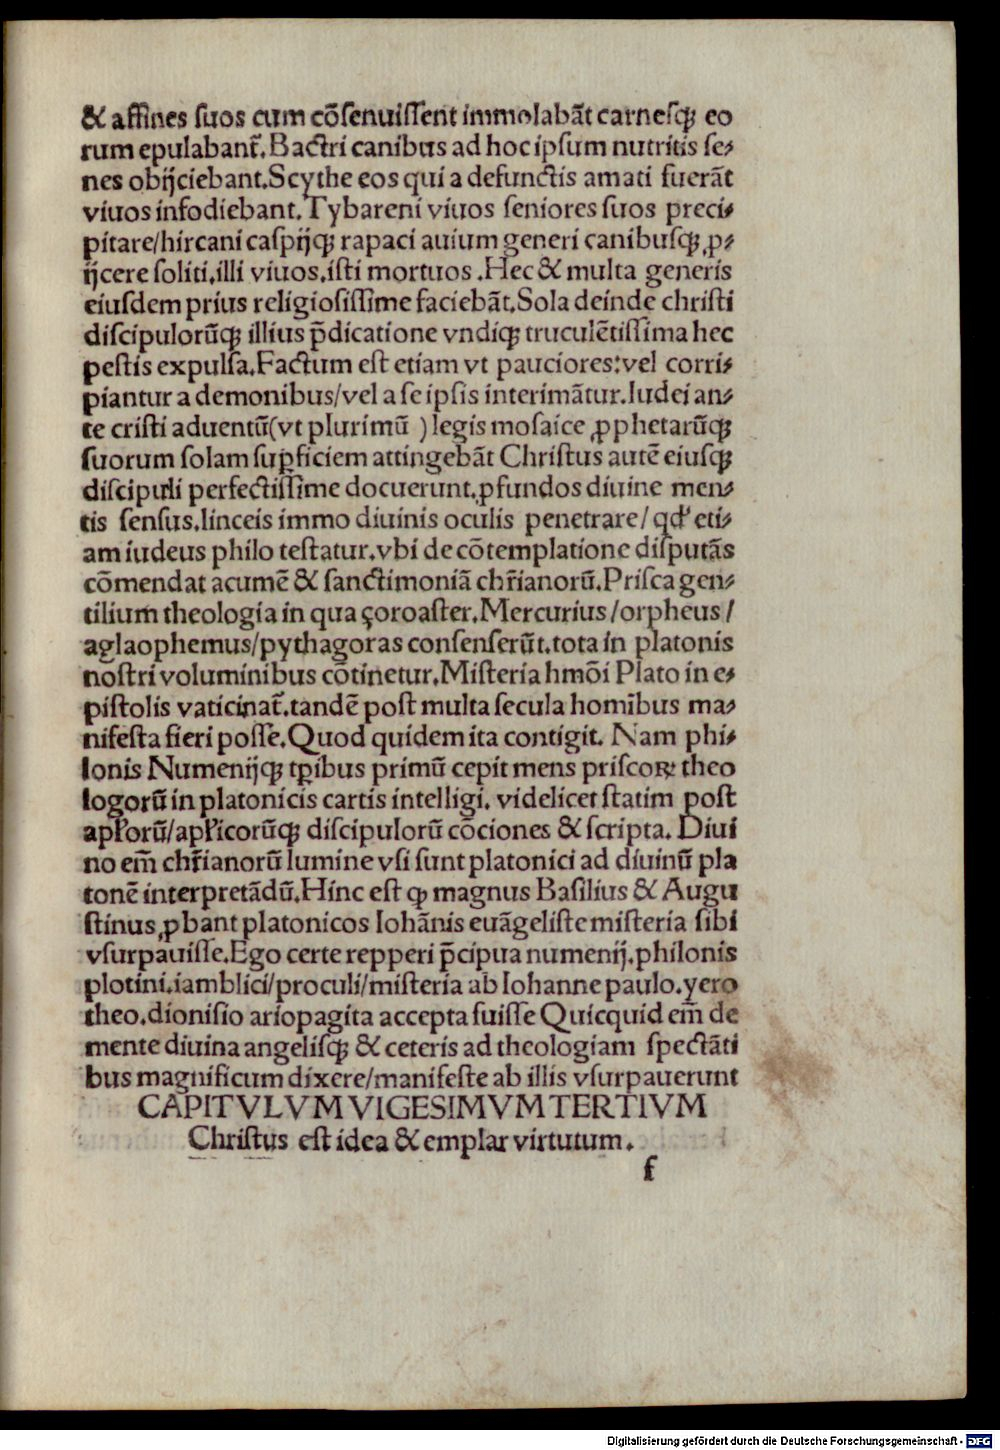 & affines suos cum cõsenuissent immolabãt carnesqꝫ eo
rum epulabant̃. Bactri canibus ad hoc ipsum nutritis se⸗
nes obijciebant. Scythe eos qui a defunctis amati fuerãt
viuos infodiebant. Tybareni viuos seniores suos preci⸗
pitare/hircani caspijqꝫ rapaci auium generi canibusqꝫ ꝓ⸗
ijcere soliti. illi viuos. isti mortuos . Hec & multa generis
eiusdem prius religiosissime faciebãt. Sola deinde christi
discipulorũqꝫ illius p̃dicatione vndiqꝫ truculẽtissima hec
pestis expulsa. Factum est etiam vt pauciores: vel corri⸗
piantur a demonibus/vel a se ipsis interimãtur. Iudei an⸗
te cristi aduentũ(vt plurimũ ) legis mosaice ꝓphetarũqꝫ
suorum solam suꝑficiem attingebãt Christus autẽ eiusqꝫ
discipuli perfectissime docuerunt. ꝓfundos diuine men⸗
tis sensus. linceis immo diuinis oculis penetrare/ qđ eti⸗
am iudeus philo testatur. vbi de cõtemplatione disputãs
cõmendat acumẽ & sanctimoniã chr̃ianorũ. Prisca gen⸗
tilium theologia in qua çoroaster. Mercurius/orpheus/
aglaophemus/pythagoras consenserũt. tota in platonis
nostri voluminibus cõtinetur. Misteria hmõi Plato in e⸗
pistolis vaticinat̃. tandẽ post multa secula homĩbus ma⸗
nifesta fieri posse. Quod quidem ita contigit. Nam phi⸗
lonis Numenijqꝫ tꝑibus primũ cepit mens priscoꝝ theo
logorũ in platonicis cartis intelligi. videlicet statim post
apl̕orũ/apl̕icorũqꝫ discipulorũ cõciones & scripta. Diui
no em̃ chr̃ianorũ lumine vsi sunt platonici ad diuinũ pla
tonẽ interpretãdũ. Hinc est ꝙ magnus Basilius & Augu
stinus ꝓbant platonicos Iohãnis euãgeliste misteria sibi
vsurpauisse. Ego certe repperi p̃cipua numenij. philonis
plotini. iamblici/proculi/misteria ab Iohanne paulo. yero
theo. dionisio ariopagita accepta fuisse Quicquid em̃ de
mente diuina angelisqꝫ & ceteris ad theologiam spectãti
bus magnificum dixere/manifeste ab illis vsurpauerunt
CAPITVLVM VIGESIMVM TERTIVM
Christus est idea & emplar virtutum.
f
Digitalisierung gefördert durch die Deutsche Forschungsgemeinschaft - DFG